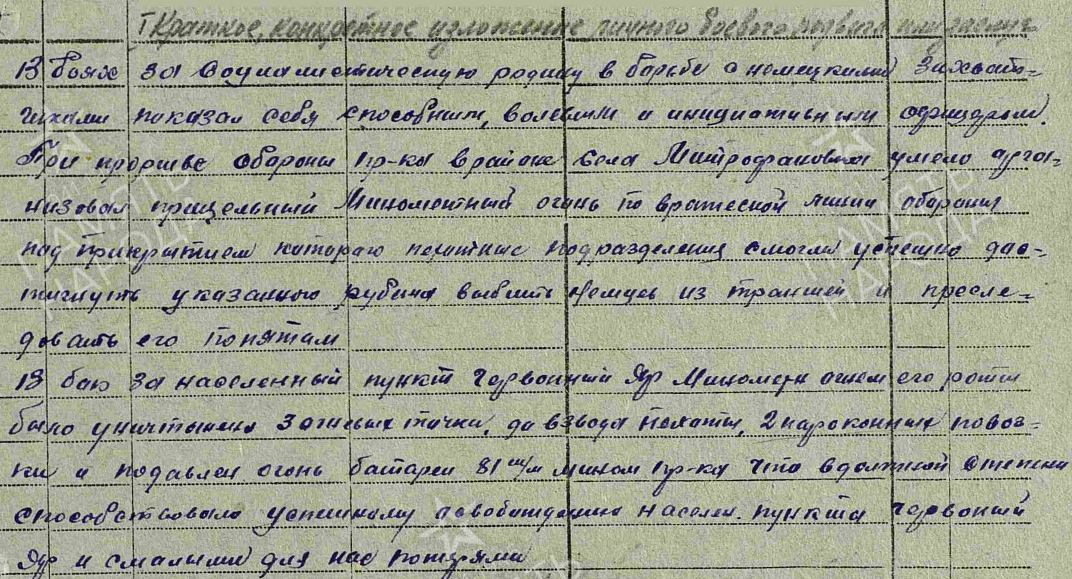 I Краткое, конкретное изложение личного боевого подвига или заслуг
В боях за социалистическую родину в борьбе с немецкими захват-
чиками показал себя способным, волевым и инициативным офицером.
При прорыве обороны пр-ка в районе села Митрофановка умело орга-
низовал прицельный Минометный огонь по вражеской линии обороны
под прикрытием которого пехотные подразделения смогли успешно дос-
тигнуть указанного рубежа выбить немцев из траншей и пресле-
довать его попятам
В бою за населенный пункт Червонный Яр Минометн огнем его роты
было уничтожено 3 огневых точки, до взвода пехоты, 2 пароконных повоз-
ки и подавлен огонь батареи 81 м/м мином пр-ка что в должной степени
способствовало успешному освобождению населен. пункта Червонный
Яр и с малыми для нас потерями
ПАМЯТЬ НАРОДА